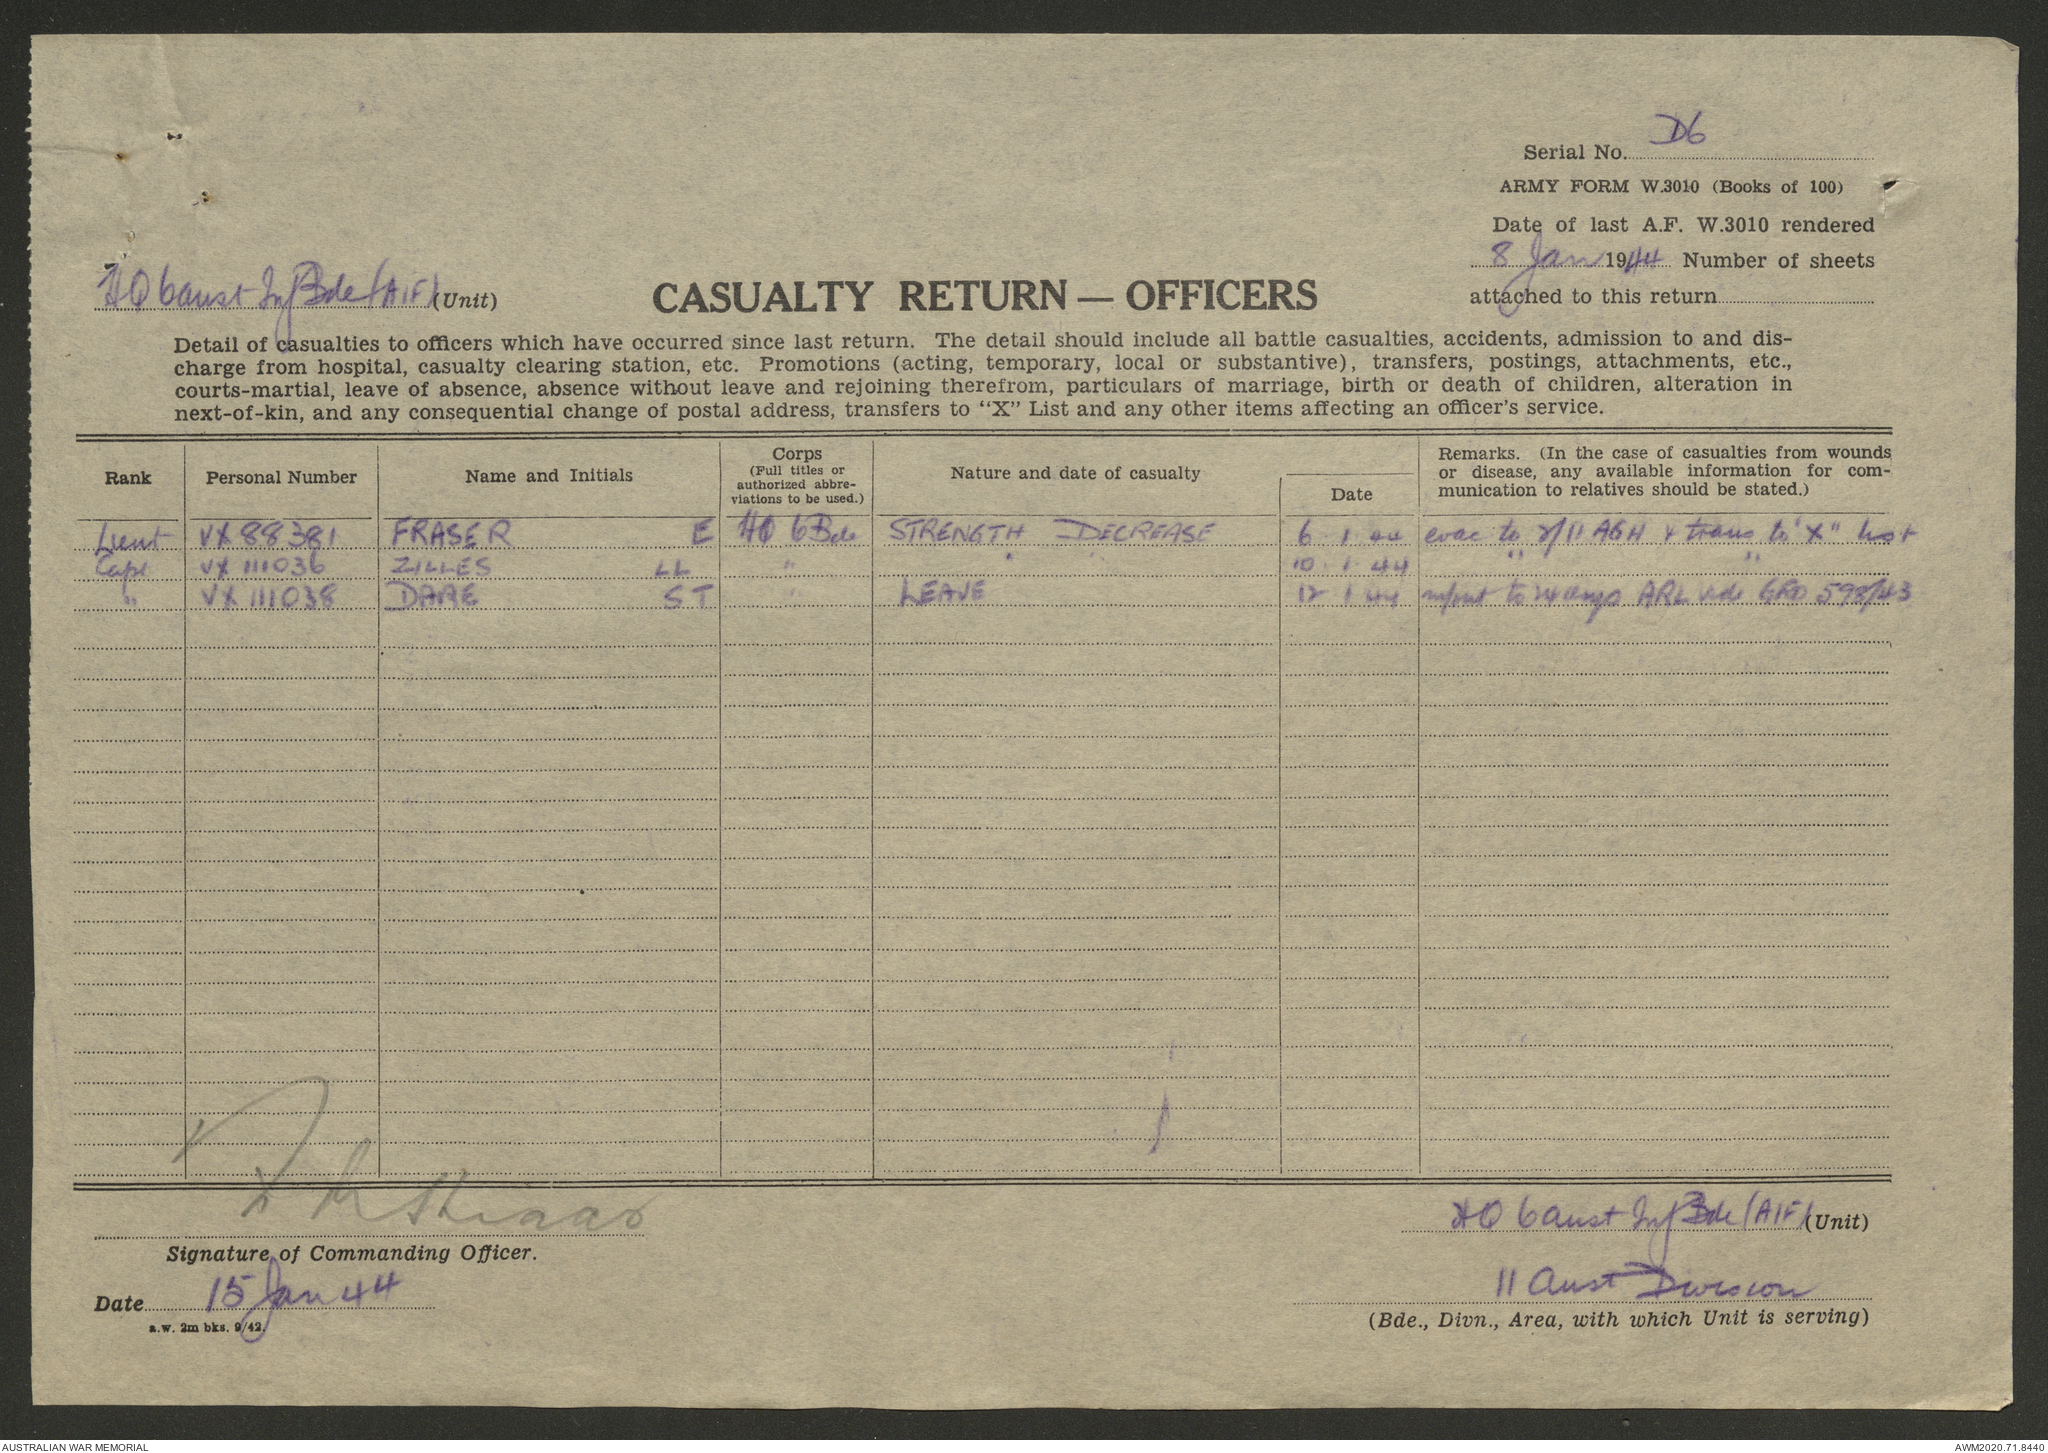 D6
Serial No.
ARMY FORM W.3010 (Books of 100)
Date of last A.F. W.3010 rendered
8 Jan 1944 Number of sheets
attached to this return
HQ 6 Aust Inf Bde (AIF) (Unit)
CASUALTY RETURN — OFFICERS
Detail of casualties to officers which have occurred since last return. The detail should include all battle casualties, accidents, admission to and dis-
charge from hospital, casualty clearing station, etc. Promotions (acting, temporary, local or substantive), transfers, postings, attachments, etc.,
courts-martial, leave of absence, absence without leave and rejoining therefrom, particulars of marriage, birth or death of children, alteration in
next-of-kin, and any consequential change of postal address, transfers to "X" List and any other items affecting an officer's service.
Rank
Personal Number
Name and Initials
Corps
(Full titles or
authorized abbre-
viations to be used.)
Nature and date of casualty
Date
Remarks. (In the case of casualties from wounds
or disease, any available information for com-
munication to relatives should be stated.)
Lieut VX 88381 FRASER E HQ 6 Bde STRENGTH DECREASE 6 1 44 evac to 2/11 AGH & trans to "X" list
Capt VX 111036 ZILLES LL " " " 10 1 44 " "
" VX 111038 DARE ST " LEAVE 12 1 44 to 24 days ARL vide GRO 598/43
Signature of Commanding Officer.
Date 15 Jan 44
a.w. 2m bks. 9/42.
HQ 6 Aust Inf Bde (AIF) (Unit)
11 Aust Division
(Bde., Divn., Area, with which Unit is serving)
AUSTRALIAN WAR MEMORIAL
AWM2020.71.8440